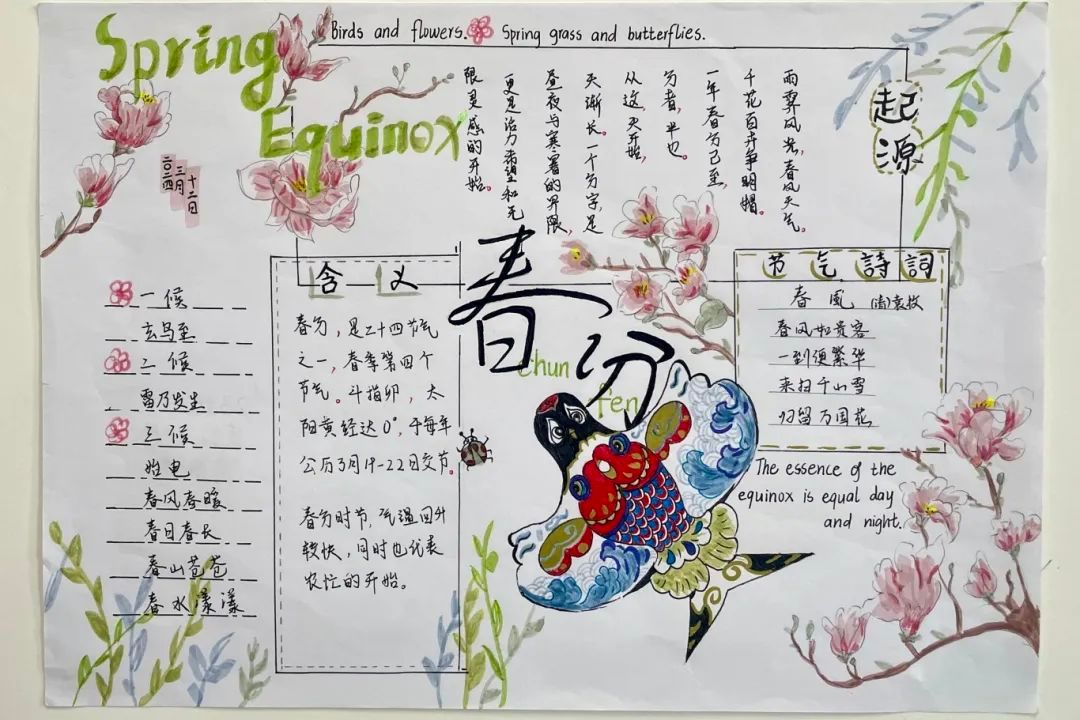 Spring
Equinox
Birds and flowers. Spring grass and butterflies.
二〇二四
三月
十二日
起源
雨霁风光,春风天气。
千花百卉争明媚。
一年春分已至,
分者,半也。
从这一天开始,
天渐长。一个分字,是
昼夜与寒暑的界限,
更是活力希望和无
限灵感的开始。
一候
玄鸟至
二候
雷乃发生
三候
始电
春风春暖
春日春长
春山苍苍
春水漾漾
含义
春分,是二十四节气
之一,春季第四个
节气。斗指卯,太
阳黄经达0°,于每年
公历3月19-22日交节。
春分时节,气温回升
较快,同时也代表
农忙的开始。
春分
chun
fen
节气詩詞
春风 (清)袁枚
春风如贵客
一到便繁华
来扫千山雪
归留万国花
The essence of the
equinox is equal day
and night.